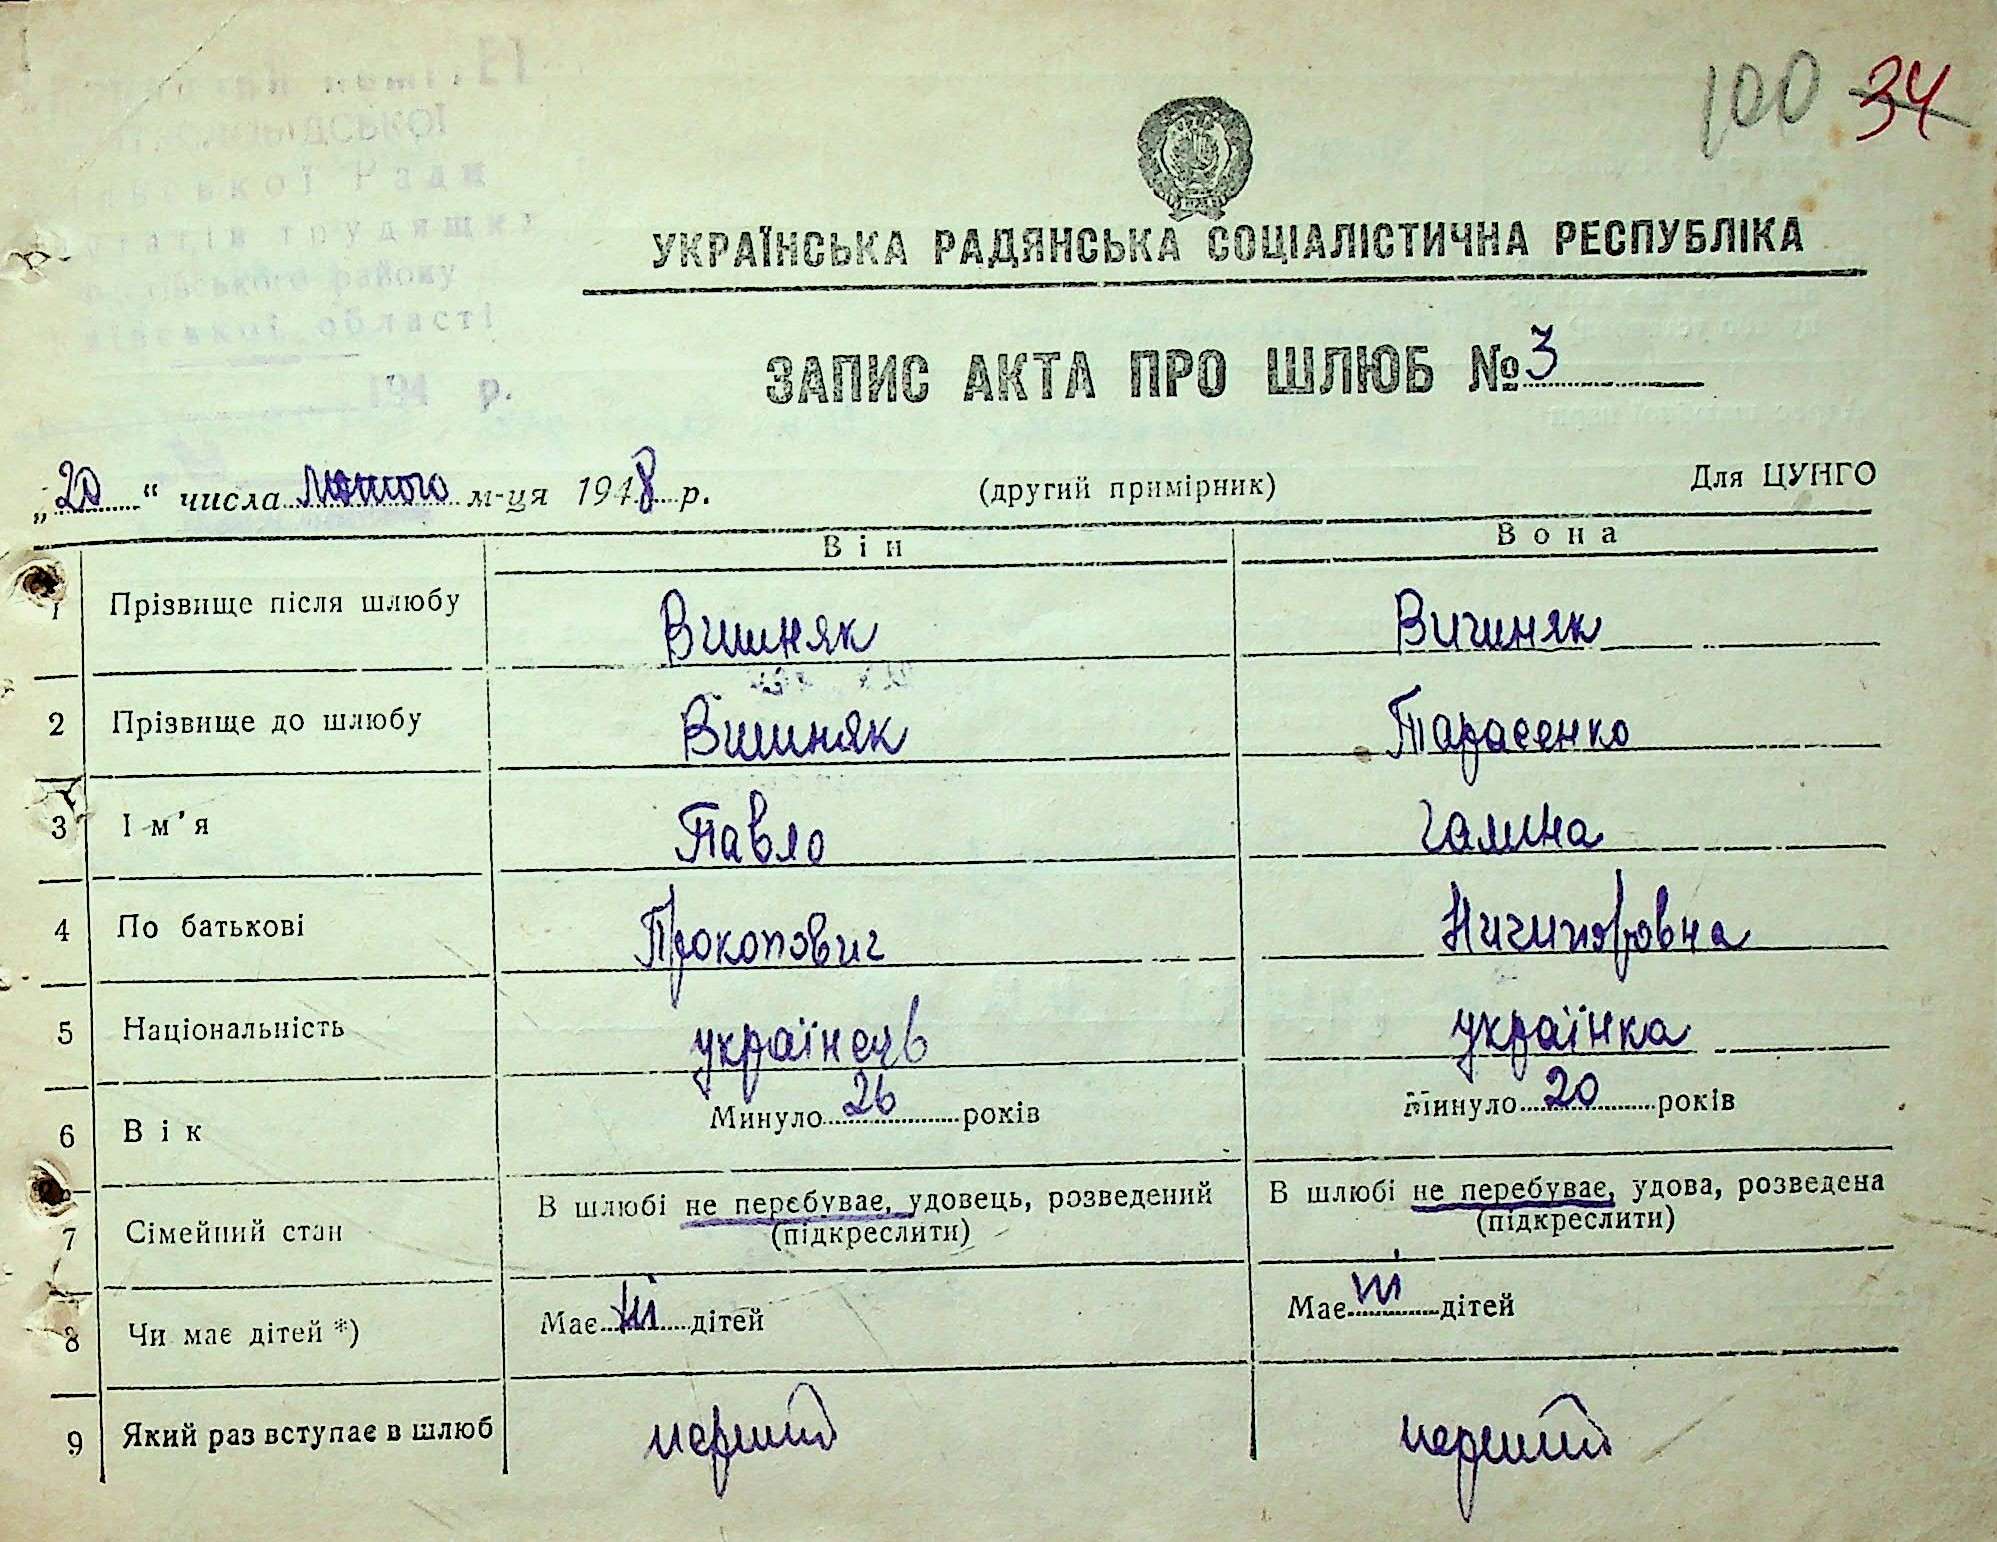 100 34
УКРАЇНСЬКА РАДЯНСЬКА СОЦІАЛІСТИЧНА РЕСПУБЛІКА
ЗАПИС АКТА ПРО ШЛЮБ № 3
„20“ числа лютого м-ця 1948 р. (другий примірник) Для ЦУНГО
Він Вона
1 Прізвище після шлюбу Вишняк Вишняк
2 Прізвище до шлюбу Вишняк Тарасенко
3 Ім'я Павло Галина
4 По батькові Прокопович Ничипоровна
5 Національність українець українка
6 Вік Минуло 26 років Минуло 20 років
7 Сімейний стан В шлюбі не перебуває, удовець, розведений (підкреслити) В шлюбі не перебуває, удова, розведена (підкреслити)
8 Чи має дітей *) Має ні дітей Має ні дітей
9 Який раз вступає в шлюб перший перший
Ради
трудящих
району
області
194 р.